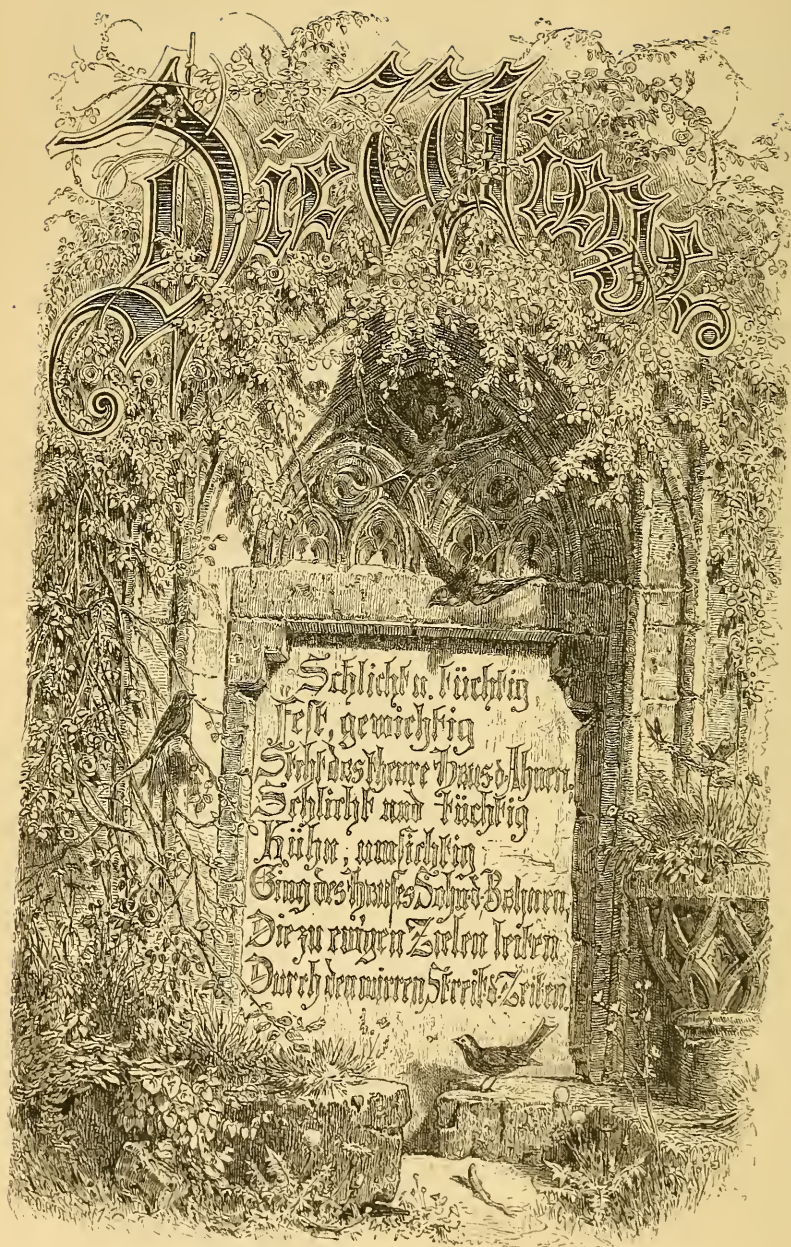 Die Wiege
Schlicht u. tüchtig
Fest, gewichtig
Steht das theure Haus d. Ahnen.
Schlicht und tüchtig
Kühn, umsichtig
Ging des Hauses Sohn d. Bahnen,
Die zu ew'gen Zielen leiten
Durch den wirren Streit d. Zeiten.